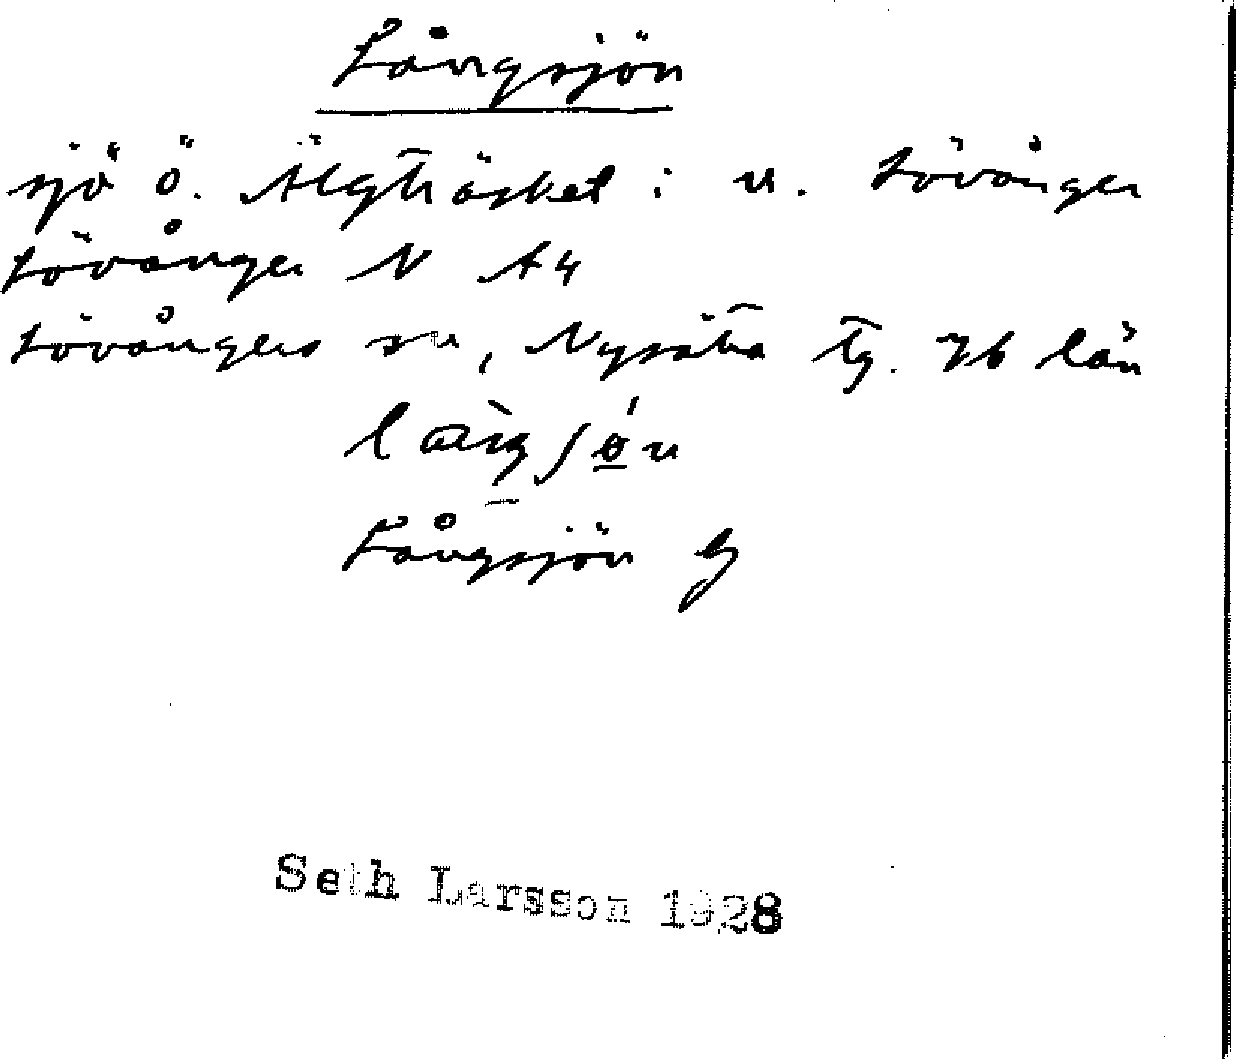 Långsjön
sjö ö. Älgträsket i n. Lövånger
Lövånger N A4
Lövångers sn, Nysätra tg. Vb län
Långsjön G
Seth Larsson 1928